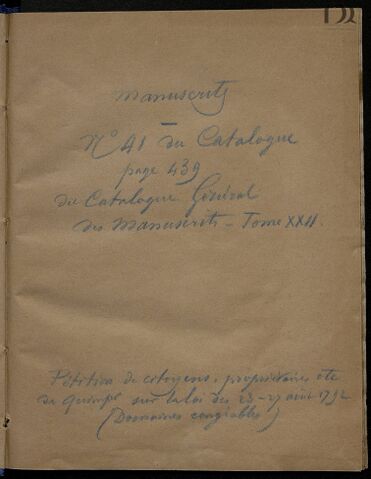 manuscrits
N° 41 du Catalogue
page 439
du Catalogue Général
des Manuscrits - Tome XXII.
Pétition de citoyens, propriétaires etc
de Quimper sur la loi des 23-27 août 1792
(Domaines congéables)